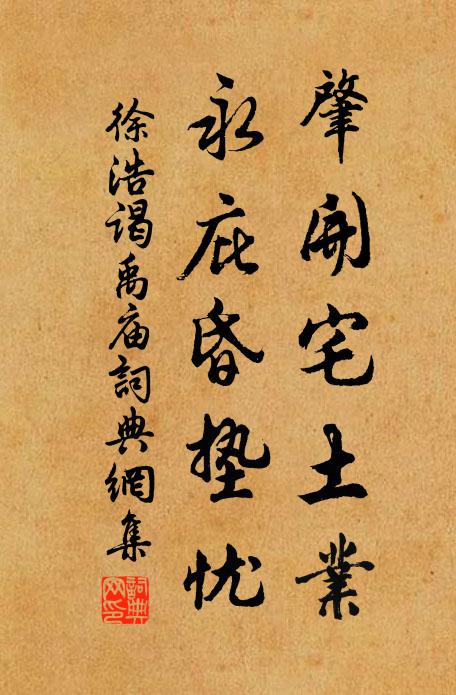 肇開宅土業
永庇昏墊忧
徐浩謁禹庙詞典網集
詞典網印